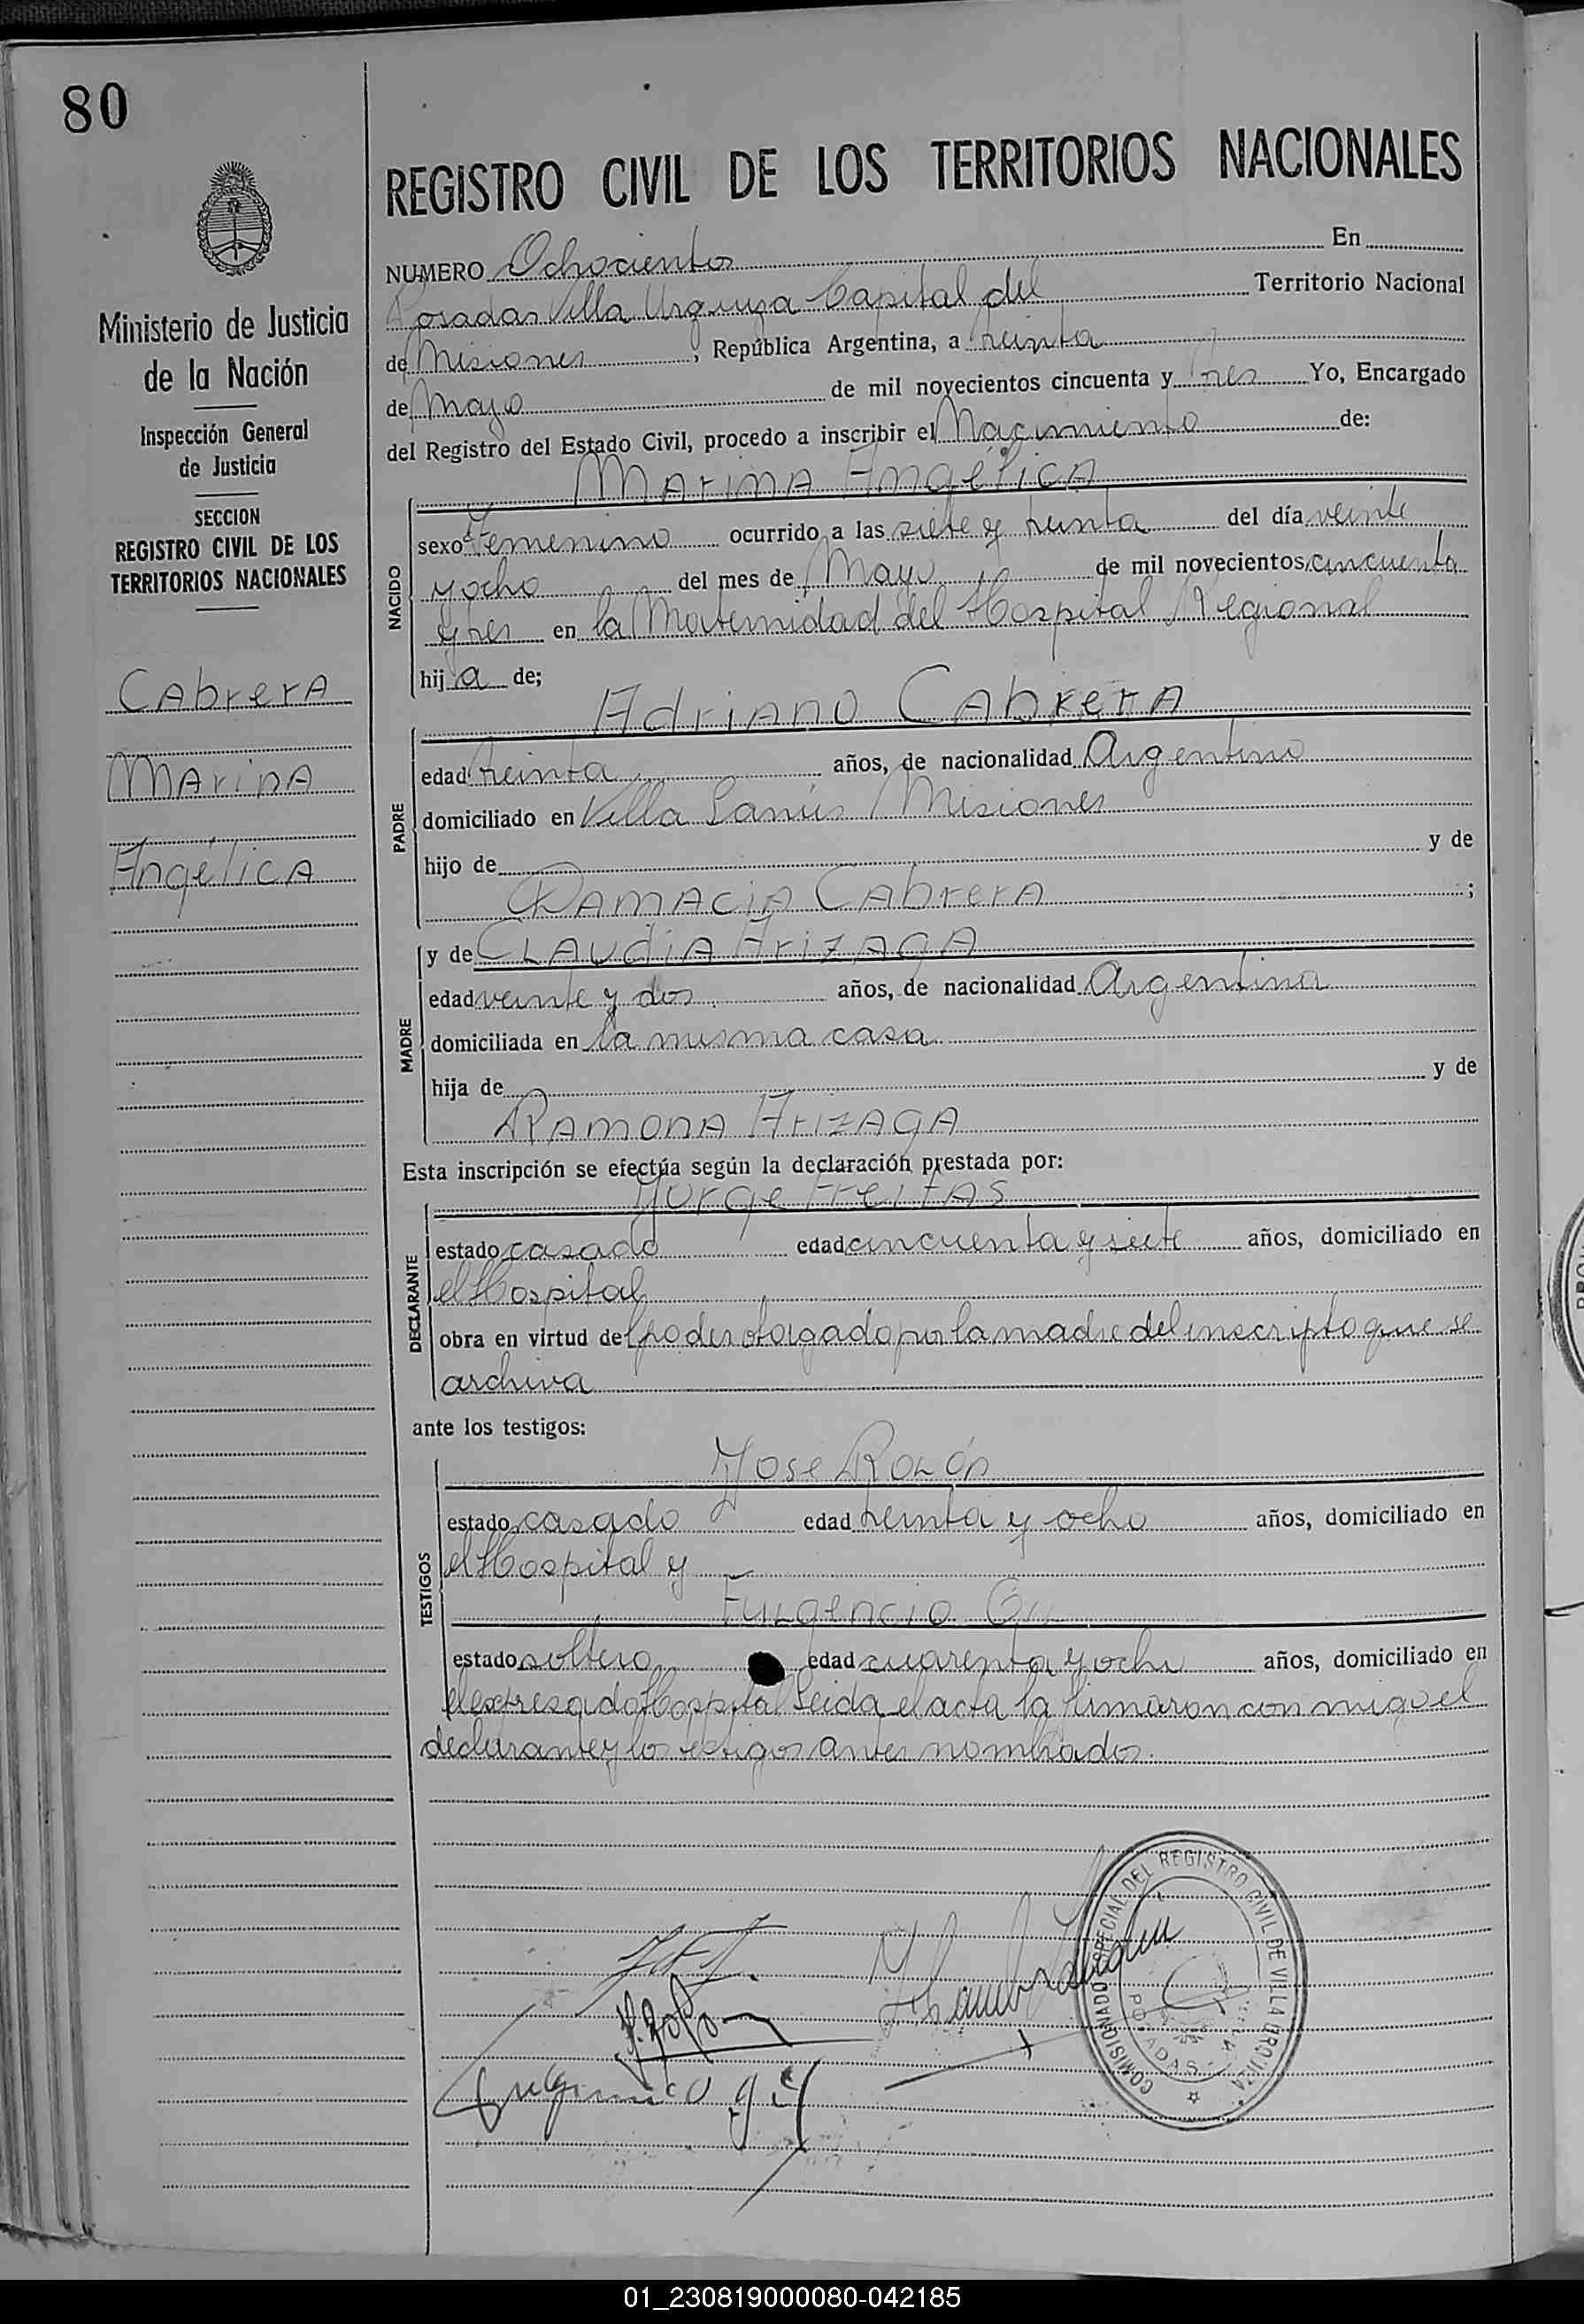 80
REGISTRO CIVIL DE LOS TERRITORIOS NACIONALES
Ministerio de Justicia
de la Nación
Inspección General
de Justicia
SECCION
REGISTRO CIVIL DE LOS
TERRITORIOS NACIONALES
Cabrera
Marina
Angélica
NUMERO Ochocientos En
Posadas Villa Urquiza Capital del Territorio Nacional
de Misiones, República Argentina, a treinta
de Mayo de mil novecientos cincuenta y tres Yo, Encargado
del Registro del Estado Civil, procedo a inscribir el Nacimiento de:
Marina Angélica
NACIDO
sexo Femenino ocurrido a las siete y treinta del día veinte
y ocho del mes de Mayo de mil novecientos cincuenta
y tres en la Maternidad del Hospital Regional
hija de;
Adriano Cabrera
PADRE
edad treinta años, de nacionalidad Argentino
domiciliado en Villa Lanús Misiones
hijo de y de
Damacia Cabrera ;
MADRE
y de Claudia Arizaga
edad veinte y dos años, de nacionalidad Argentina
domiciliada en la misma casa
hija de y de
Ramona Arizaga
Esta inscripción se efectúa según la declaración prestada por:
Jorge Freitas
DECLARANTE
estado casado edad cincuenta y siete años, domiciliado en
el Hospital
obra en virtud del poder otorgado por la madre del inscripto que se
archiva
ante los testigos:
José Rolón
TESTIGOS
estado casado edad treinta y ocho años, domiciliado en
el Hospital y
Fulgencio
estado soltero edad cuarenta y ocho años, domiciliado en
el expresado Hospital Leida el acta la firmaron conmigo el
declarante y los testigos antes nombrados.
COMISIONADO ESPECIAL DEL REGISTRO CIVIL DE VILLA URQUIZA
POSADAS
J. Rolón
01_230819000080-042185